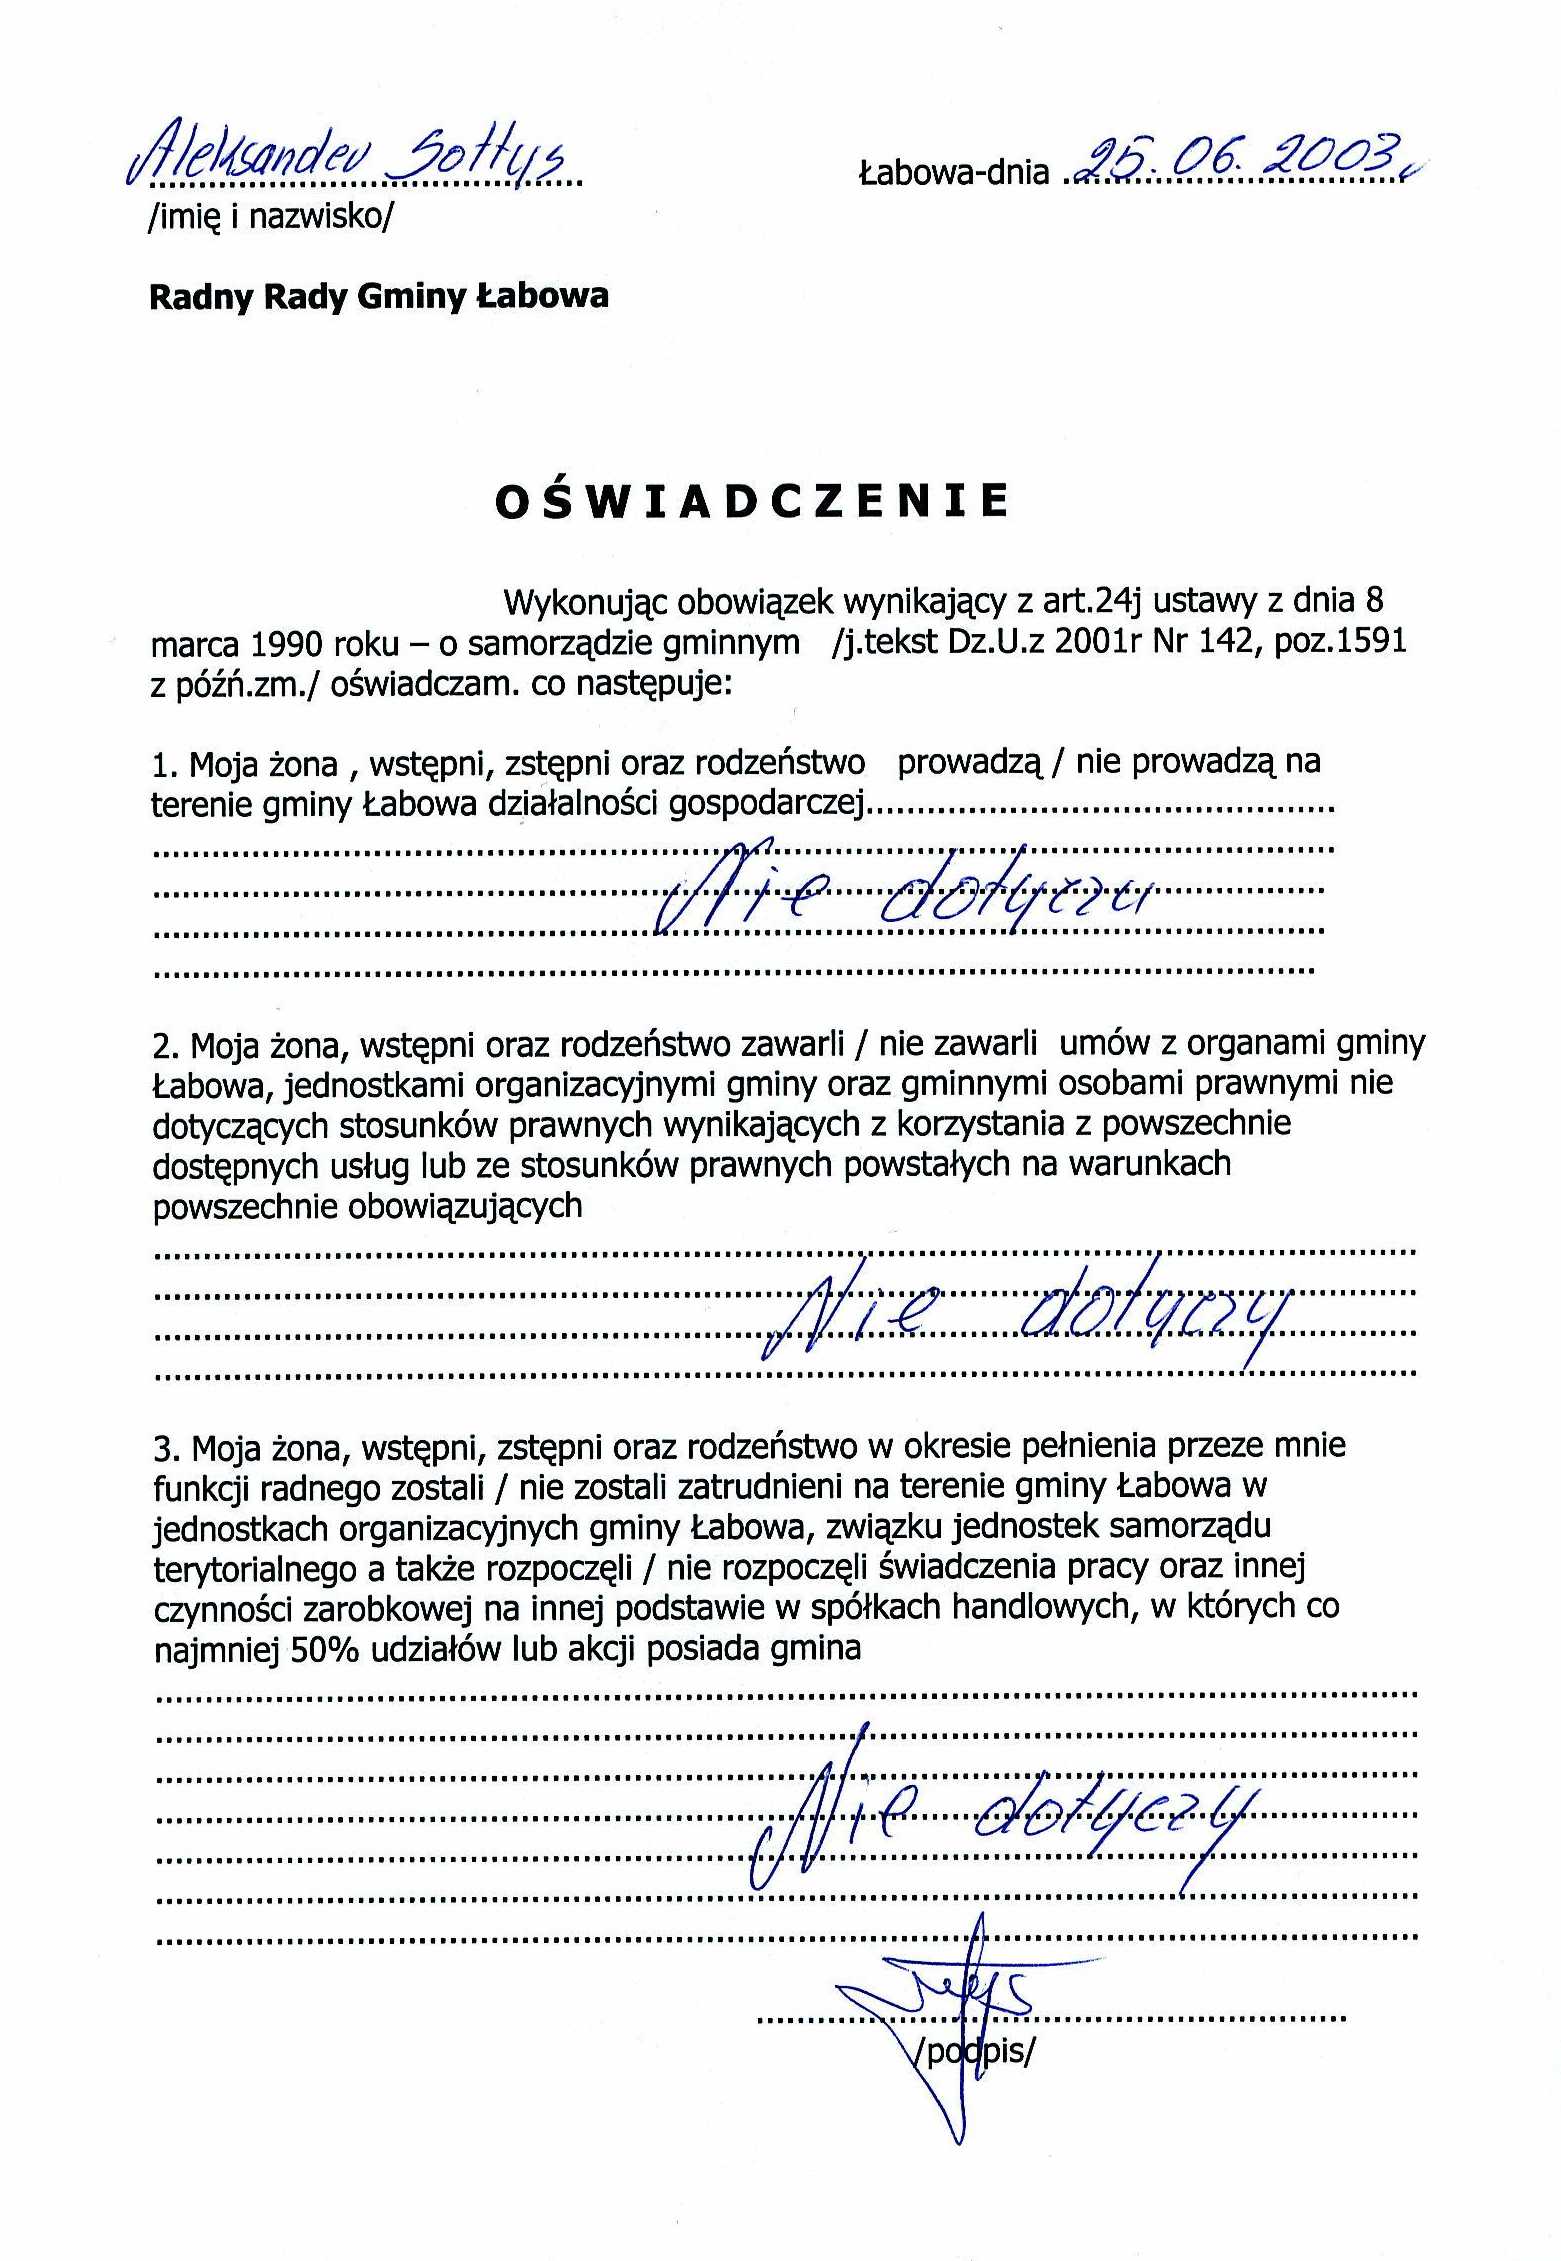 Aleksander Sołtys Łabowa-dnia 25.06.2003r
/imię i nazwisko/
Radny Rady Gminy Łabowa
OŚWIADCZENIE
Wykonując obowiązek wynikający z art.24j ustawy z dnia 8
marca 1990 roku – o samorządzie gminnym /j.tekst Dz.U.z 2001r Nr 142, poz.1591
z późń.zm./ oświadczam. co następuje:
1. Moja żona , wstępni, zstępni oraz rodzeństwo prowadzą / nie prowadzą na
terenie gminy Łabowa działalności gospodarczej........................................
Nie dotyczy
2. Moja żona, wstępni oraz rodzeństwo zawarli / nie zawarli umów z organami gminy
Łabowa, jednostkami organizacyjnymi gminy oraz gminnymi osobami prawnymi nie
dotyczących stosunków prawnych wynikających z korzystania z powszechnie
dostępnych usług lub ze stosunków prawnych powstałych na warunkach
powszechnie obowiązujących
Nie dotyczy
3. Moja żona, wstępni, zstępni oraz rodzeństwo w okresie pełnienia przeze mnie
funkcji radnego zostali / nie zostali zatrudnieni na terenie gminy Łabowa w
jednostkach organizacyjnych gminy Łabowa, związku jednostek samorządu
terytorialnego a także rozpoczęli / nie rozpoczęli świadczenia pracy oraz innej
czynności zarobkowej na innej podstawie w spółkach handlowych, w których co
najmniej 50% udziałów lub akcji posiada gmina
Nie dotyczy
/podpis/